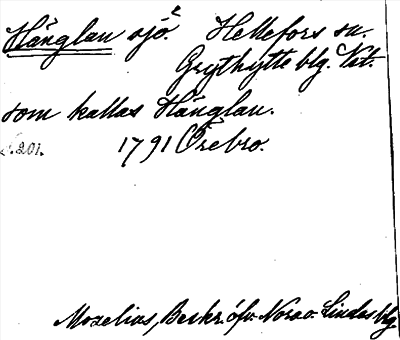 Hänglan sjö. Hellefors sn.
Grythytte blg. Vat.
som kallas Hänglan.
S. 201. 1791 Örebro.
Moxelius, Beskr. öfv. Nora o. Lindes blg